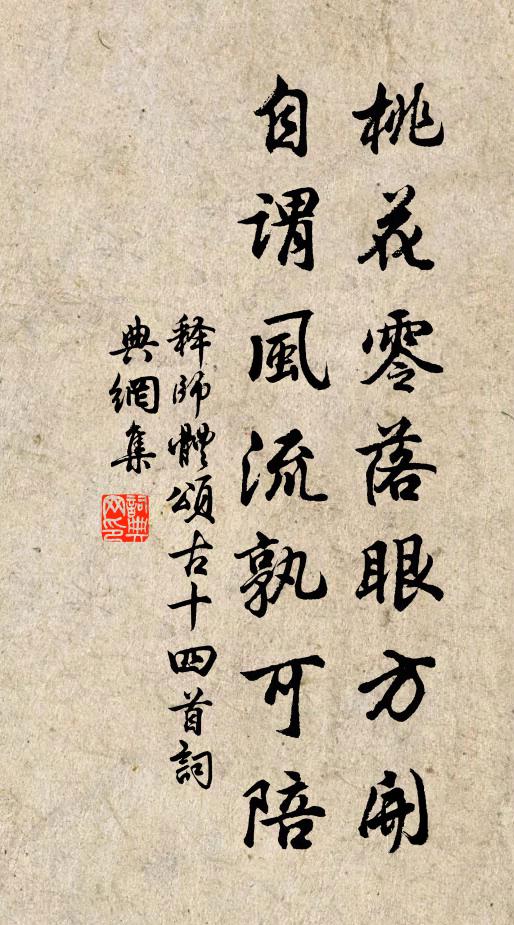 桃花零落眼方開
自謂風流孰可陪
释師體頌古十四首詞
典網集
詞典网印